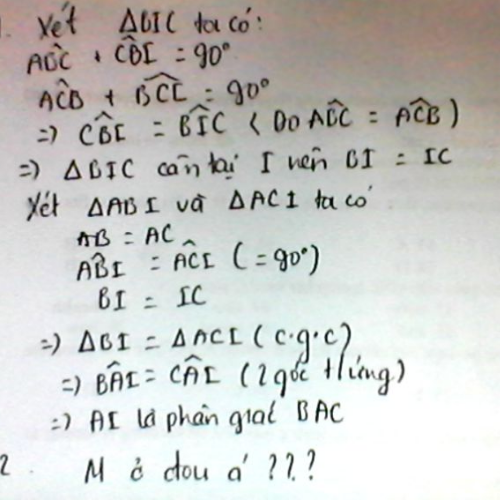 1. Xét ΔBIC ta có:
ABĈ + CB̂I = 90°
AĈB + BĈI = 90°
=> CB̂I = BÎC (Do AB̂C = AĈB)
=> ΔBIC cân tại I nên BI = IC
Xét ΔABI và ΔACI ta có
AB = AC
AB̂I = AĈI (= 90°)
BI = IC
=> ΔBI = ΔACI (c.g.c)
=> BÂI = CÂI (2 góc tứng)
=> AI là phân giác BAC
2. M ở đou á ???